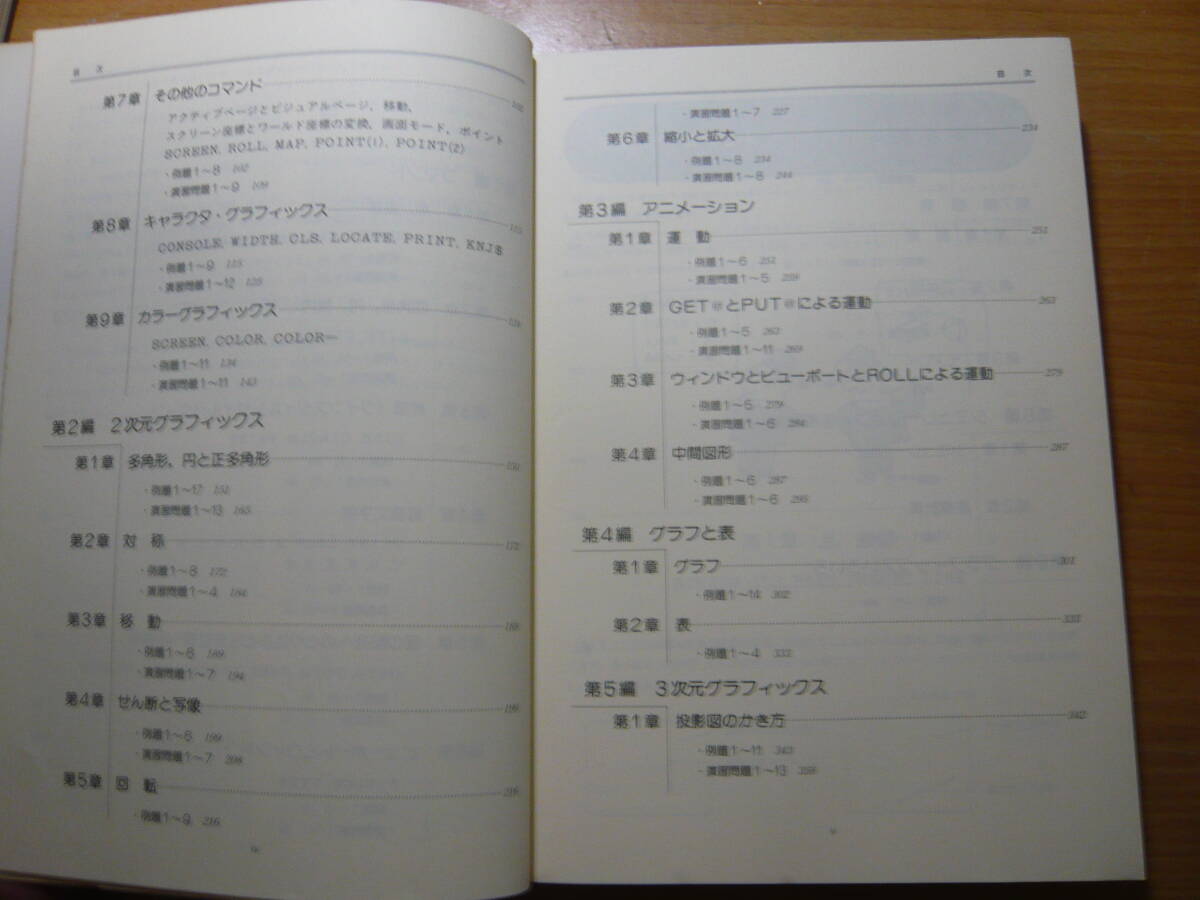 目 次
第7章 その他のコマンド 102
アクティブページとビジュアルページ, 移動,
スクリーン座標とワールド座標の変換, 画面モード, ポイント
SCREEN, ROLL, MAP, POINT(1), POINT(2)
・例題1〜8 102
・演習問題1〜9 109
第8章 キャラクタ・グラフィックス 115
CONSOLE, WIDTH, CLS, LOCATE, PRINT, KNJ$
・例題1〜9 115
・演習問題1〜12 125
第9章 カラーグラフィックス 134
SCREEN, COLOR, COLOR=
・例題1〜11 134
・演習問題1〜11 143
第2編 2次元グラフィックス
第1章 多角形、円と正多角形 151
・例題1〜17 151
・演習問題1〜13 165
第2章 対 称 172
・例題1〜8 172
・演習問題1〜4 184
第3章 移 動 189
・例題1〜6 189
・演習問題1〜7 194
第4章 せん断と写像 199
・例題1〜6 199
・演習問題1〜7 208
第5章 回 転 216
・例題1〜9 216
目 次
・演習問題1〜7 227
第6章 縮小と拡大 234
・例題1〜8 234
・演習問題1〜8 244
第3編 アニメーション
第1章 運 動 251
・例題1〜6 251
・演習問題1〜5 259
第2章 GET@とPUT@による運動 263
・例題1〜5 263
・演習問題1〜11 269
第3章 ウィンドウとビューポートとROLLによる運動 279
・例題1〜5 279
・演習問題1〜6 284
第4章 中間図形 287
・例題1〜6 287
・演習問題1〜6 295
第4編 グラフと表
第1章 グラフ 301
・例題1〜14 302
第2章 表 333
・例題1〜4 333
第5編 3次元グラフィックス
第1章 投影図のかき方 342
・例題1〜11 343
・演習問題1〜13 358
v